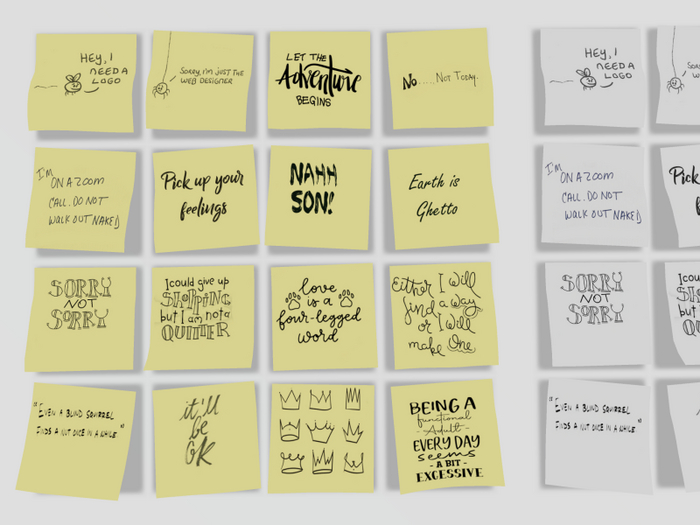 HEY, I
NEED A
LOGO
SORRY, I'M JUST THE
WEB DESIGNER
LET THE
Adventure
BEGINS
No..... Not Today.
I'M
ON A ZOOM
CALL. DO NOT
WALK OUT NAKED
Pick up your
feelings
NAHH
SON!
Earth is
Ghetto
SORRY
NOT
SORRY
I could give up
SHOPPING
but I am not a
QUITTER
love
is a
four-legged
word
Either I will
find a way
or I will
make One
"EVEN A BLIND SQUIRREL
FINDS A NUT ONCE IN A WHILE"
it'll
be
OK
BEING A
functional
-Adult-
EVERY DAY
seems
- A BIT -
EXGESSIVE
HEY, I
NEED A
LOGO
I'M
ON A ZOOM
CALL. DO NOT
WALK OUT NAKED
Pick
SORRY
NOT
SORRY
but I
"EVEN A BLIND SQUIRREL
FINDS A NUT ONCE IN A WHILE"